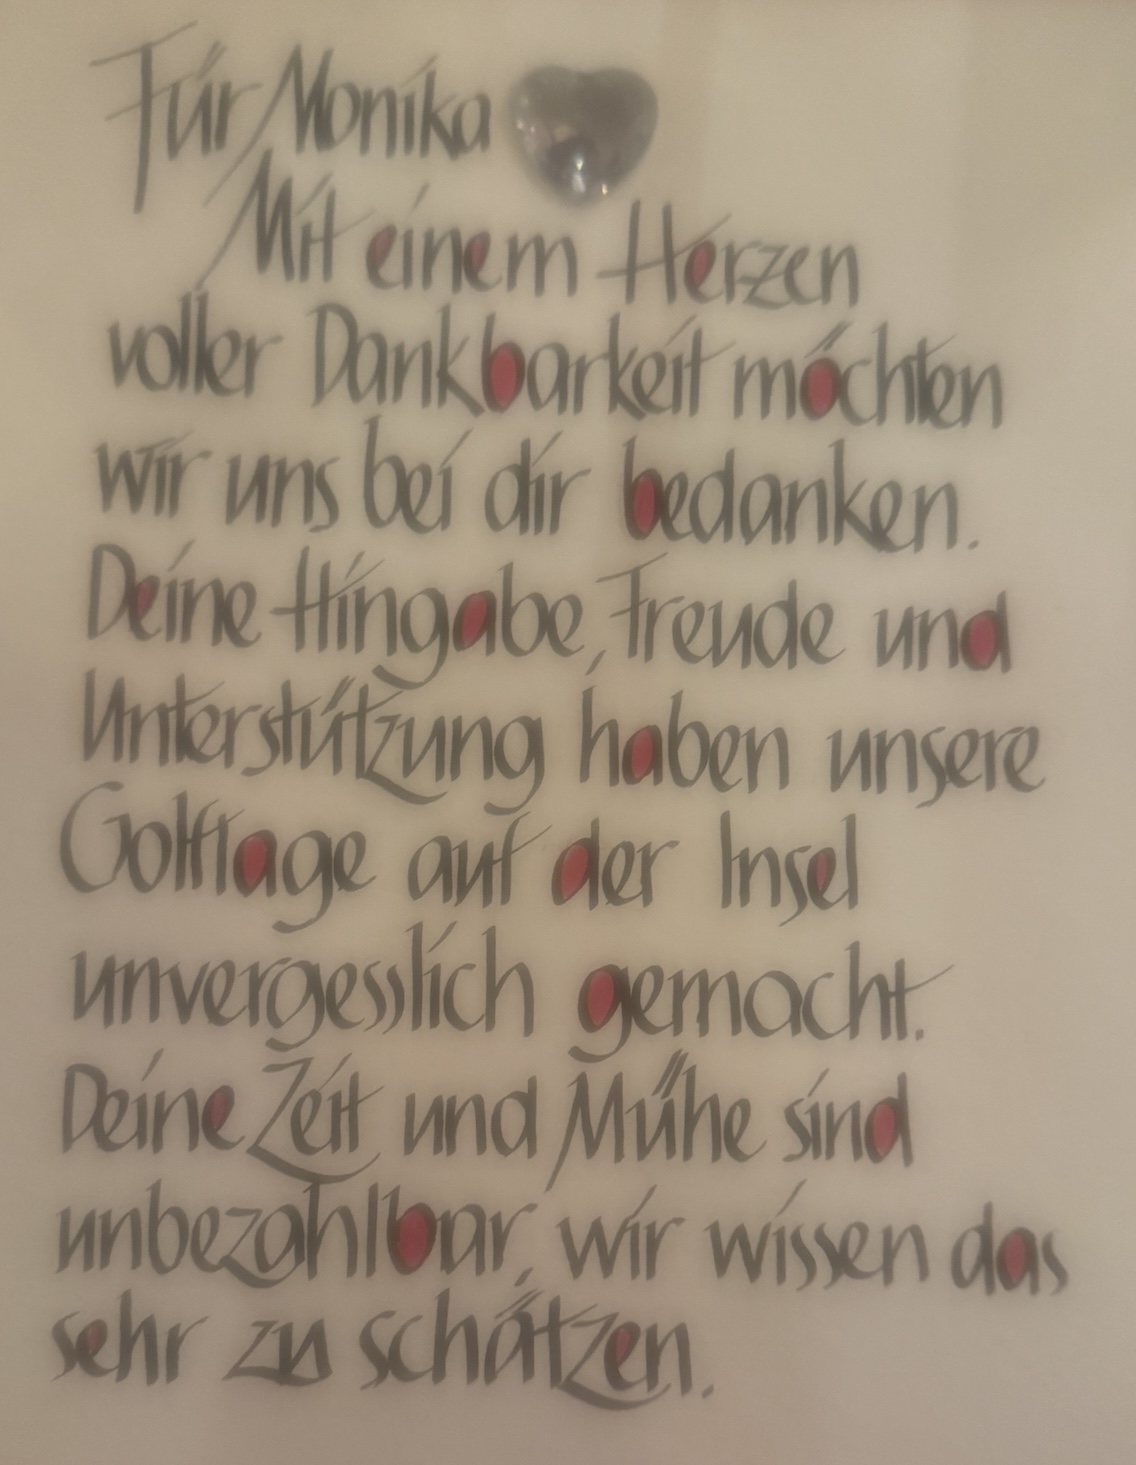 Für Monika
Mit einem Herzen
voller Dankbarkeit möchten
wir uns bei dir bedanken.
Deine Hingabe, Freude und
Unterstützung haben unsere
Golftage auf der Insel
unvergesslich gemacht.
Deine Zeit und Mühe sind
unbezahlbar, wir wissen das
sehr zu schätzen.